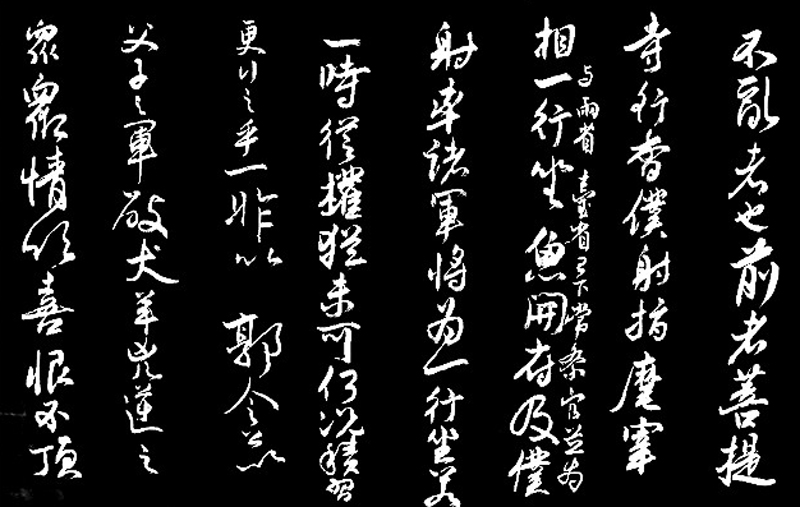 不亂者也前者菩提
寺行香僕射指麾宰
与兩省臺省已下常參官並為
相一行坐魚開府及僕
射率諸軍將為一行坐若
一時從權猶未可何況積習
更行之乎一昨以郭令公以
父子之軍破犬羊兇逆之
眾眾情欣喜恨不頂